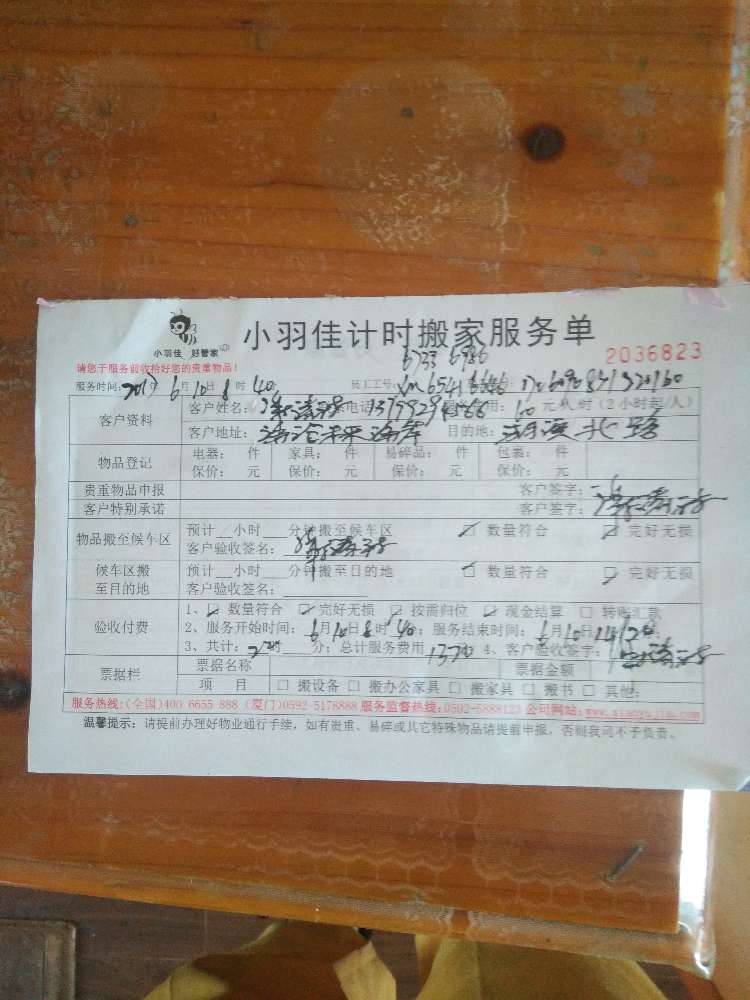 小羽佳 好管家
小羽佳计时搬家服务单
2036823
请您于服务前收拾好您的贵重物品！
6733 6986
服务时间： 2017年 6月 10日 8时 40 员工工号： 6541 6686
客户资料 客户姓名： 联系电话 13799294566 服务费用： 60 元/人/时（2小时起/人）
客户地址： 海沧未来海岸 目的地： 湖滨北路
物品登记 电器： 件 家具： 件 易碎品： 件 包裹： 件
保价： 元 保价： 元 保价： 元 保价： 元
贵重物品申报 客户签字：
客户特别承诺 客户签字：
物品搬至候车区 预计 小时 分钟搬至候车区 数量符合 完好无损
客户验收签名：
候车区搬至目的地 预计 小时 分钟搬至目的地 数量符合 完好无损
客户验收签名：
验收付费 1、 数量符合 完好无损 按需归位 现金结算 转账汇款
2、服务开始时间： 6月10日8时40 ；服务结束时间： 6月10日14 20
3、共计： 时 分；总计服务费用 1320 4、客户验收签字：
票据栏 票据名称 票据金额
项 目 搬设备 搬办公家具 搬家具 搬书 其他：
服务热线：（全国）400 6655 888（厦门）0592-5178888 服务监督热线：0592-5888123 公司网站：www.xiaoyujia.com
温馨提示：请提前办理好物业通行手续，如有贵重、易碎或其它特殊物品请提前申报，否则我司不予负责。